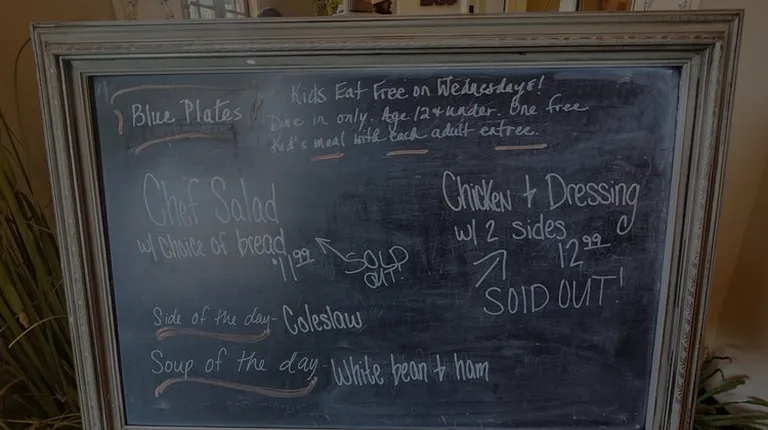 Blue Plates
Kids Eat Free on Wednesdays!
Dine in only. Age 12 & under. One free
Kid's meal with each adult entree.
Chef Salad
w/ choice of bread
$11.99
SOLD
OUT!
Chicken + Dressing
w/ 2 sides
12.99
SOLD OUT!
Side of the day - Coleslaw
Soup of the day - White bean + ham